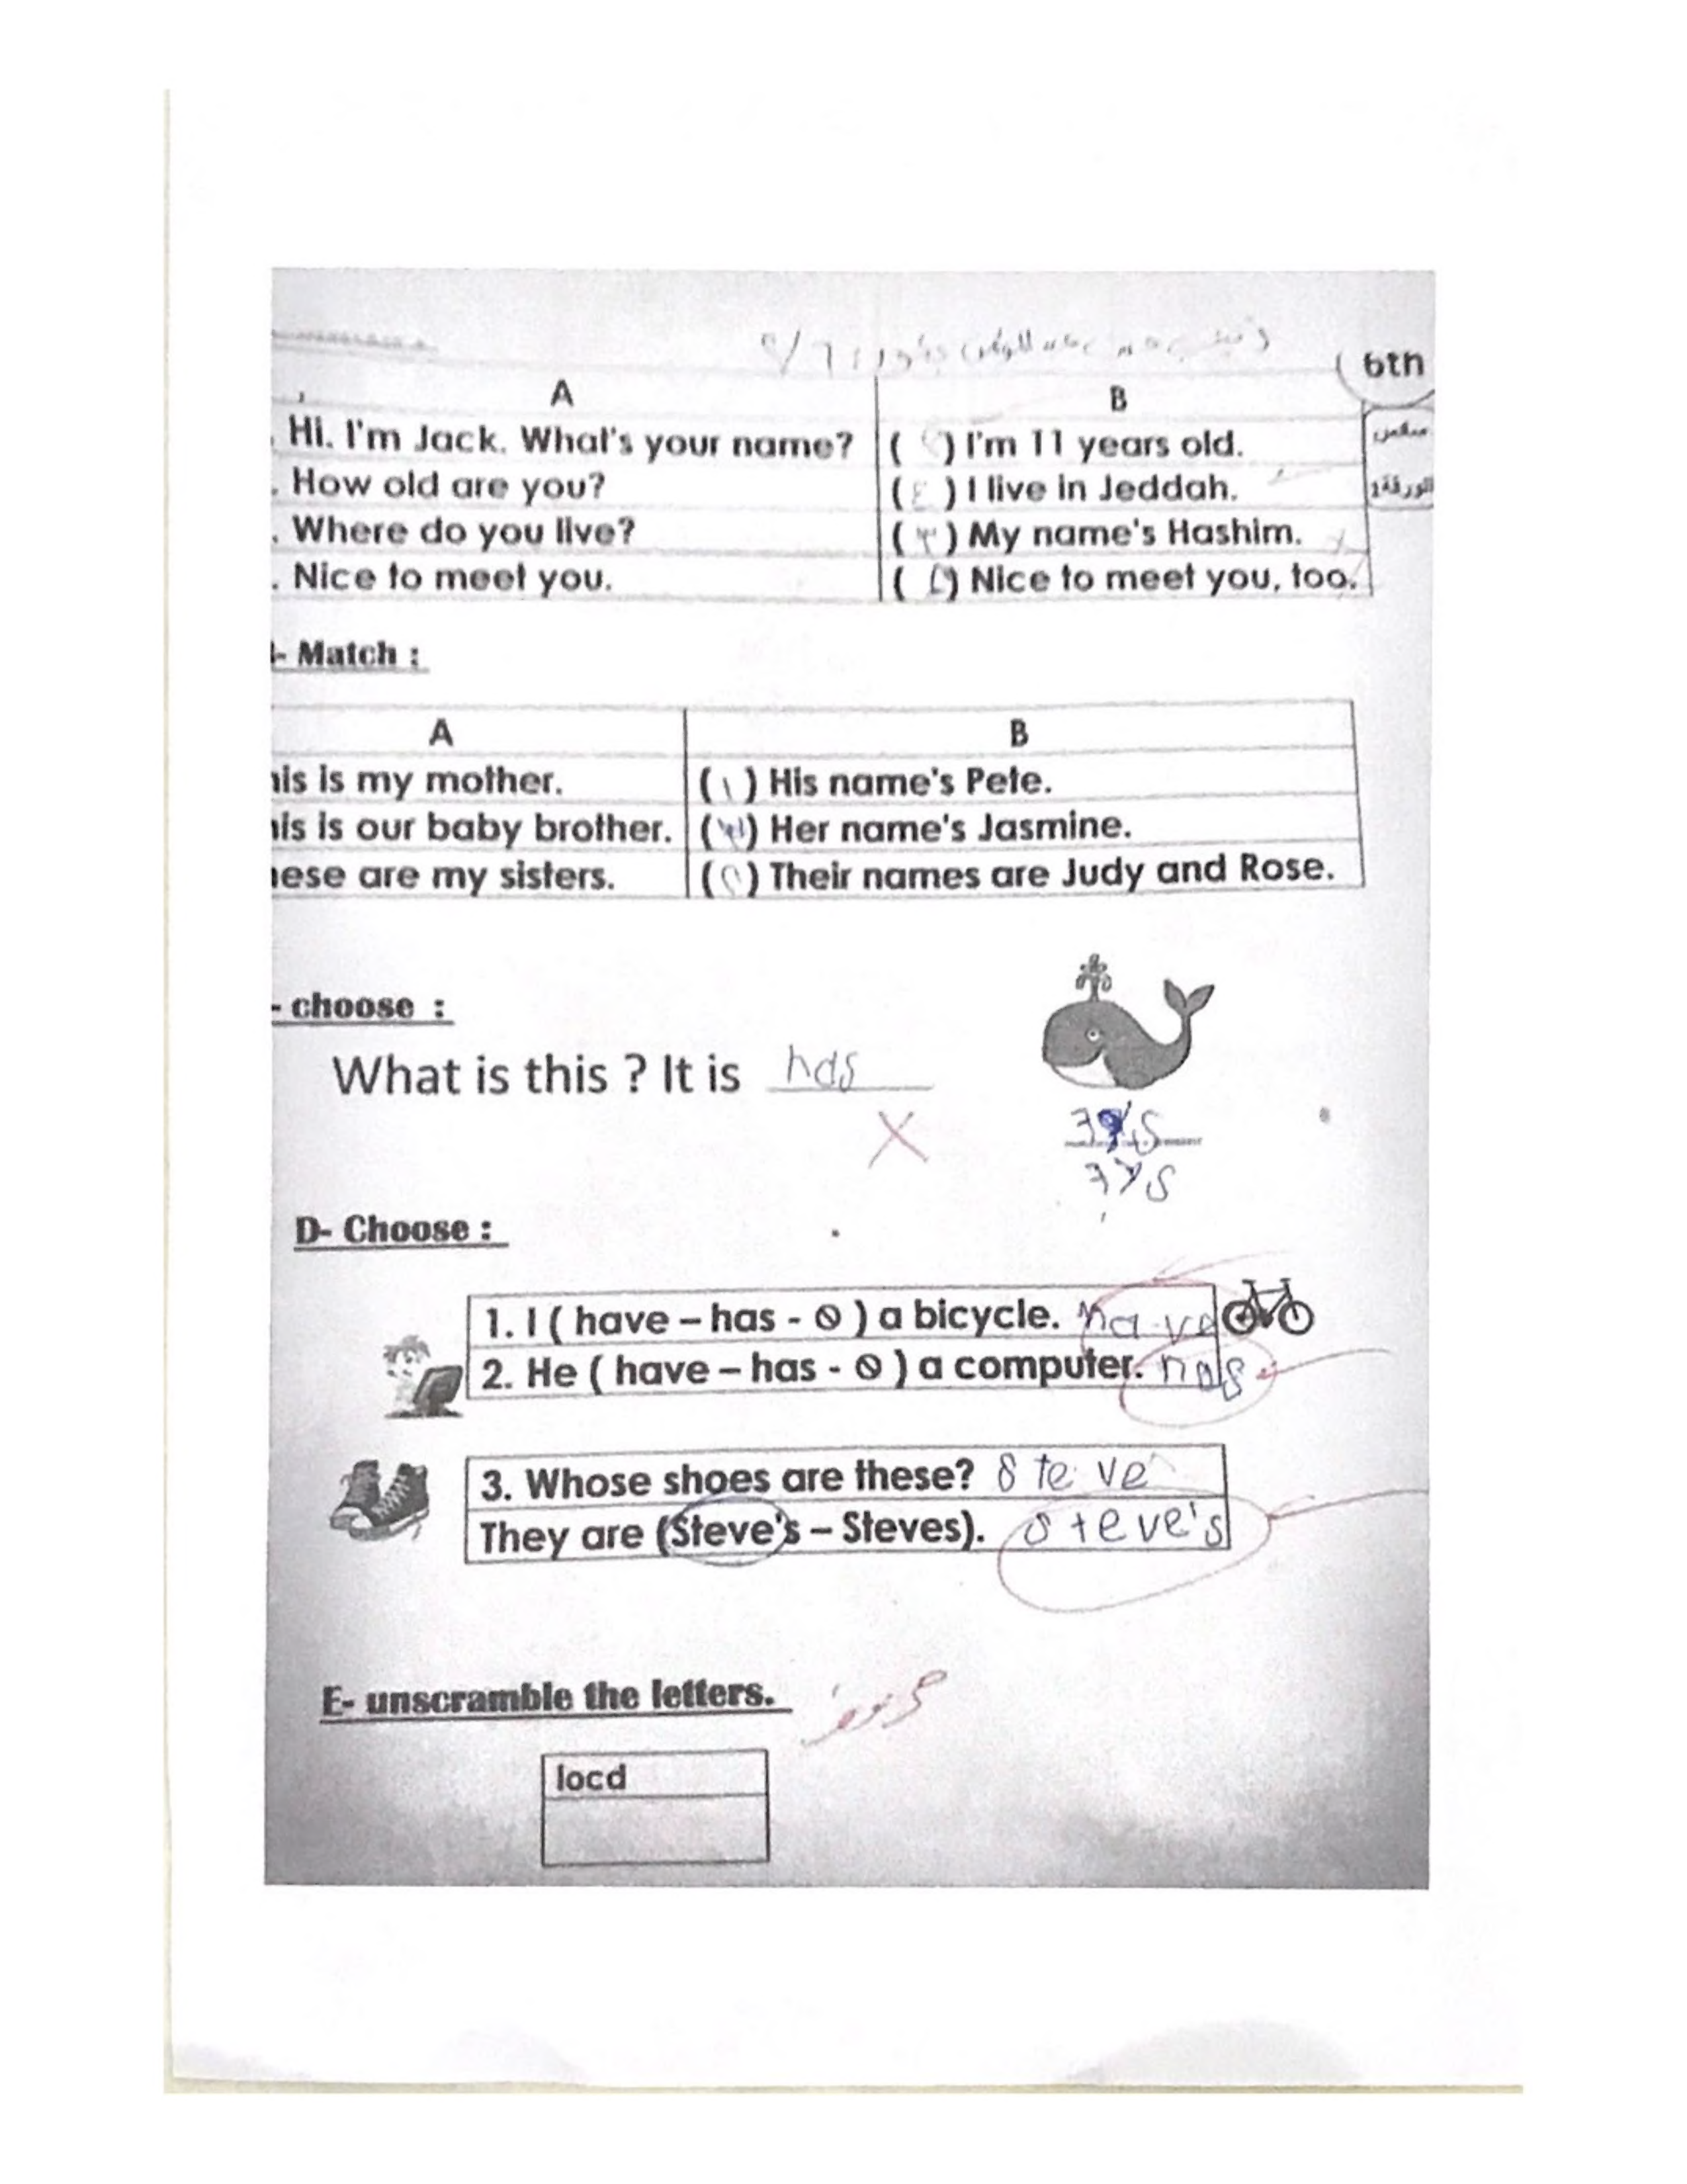 6th
A B
Hi. I'm Jack. What's your name? ( ) I'm 11 years old.
. How old are you? (٤) I live in Jeddah.
. Where do you live? (٣) My name's Hashim.
. Nice to meet you. ( ) Nice to meet you, too.
- Match :
A B
his is my mother. (١) His name's Pete.
his is our baby brother. ( ) Her name's Jasmine.
hese are my sisters. ( ) Their names are Judy and Rose.
- choose :
What is this ? It is has
X
D- Choose :
1. I ( have – has - ⦸ ) a bicycle. have
2. He ( have – has - ⦸ ) a computer. has
3. Whose shoes are these? Steve
They are (Steve's – Steves). Steve's
E- unscramble the letters.
locd